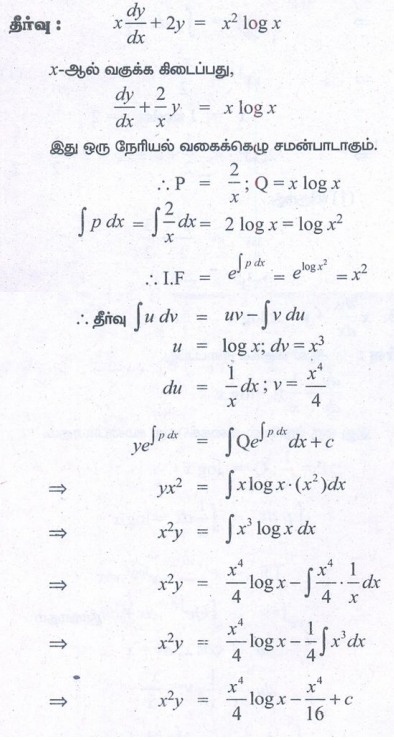 தீர்வு : x dy/dx + 2y = x² log x
x-ஆல் வகுக்க கிடைப்பது,
dy/dx + 2/x y = x log x
இது ஒரு நேரியல் வகைக்கெழு சமன்பாடாகும்.
∴ P = 2/x ; Q = x log x
∫p dx = ∫2/x dx = 2 log x = log x²
∴ I.F = e^∫p dx = e^log x² = x²
∴ தீர்வு ∫u dv = uv – ∫v du
u = log x; dv = x³
du = 1/x dx ; v = x⁴/4
ye^∫p dx = ∫Qe^∫p dx dx + c
⇒ yx² = ∫x log x · (x²)dx
⇒ x²y = ∫x³ log x dx
⇒ x²y = x⁴/4 log x – ∫x⁴/4 · 1/x dx
⇒ x²y = x⁴/4 log x – 1/4 ∫x³dx
⇒ x²y = x⁴/4 log x – x⁴/16 + c